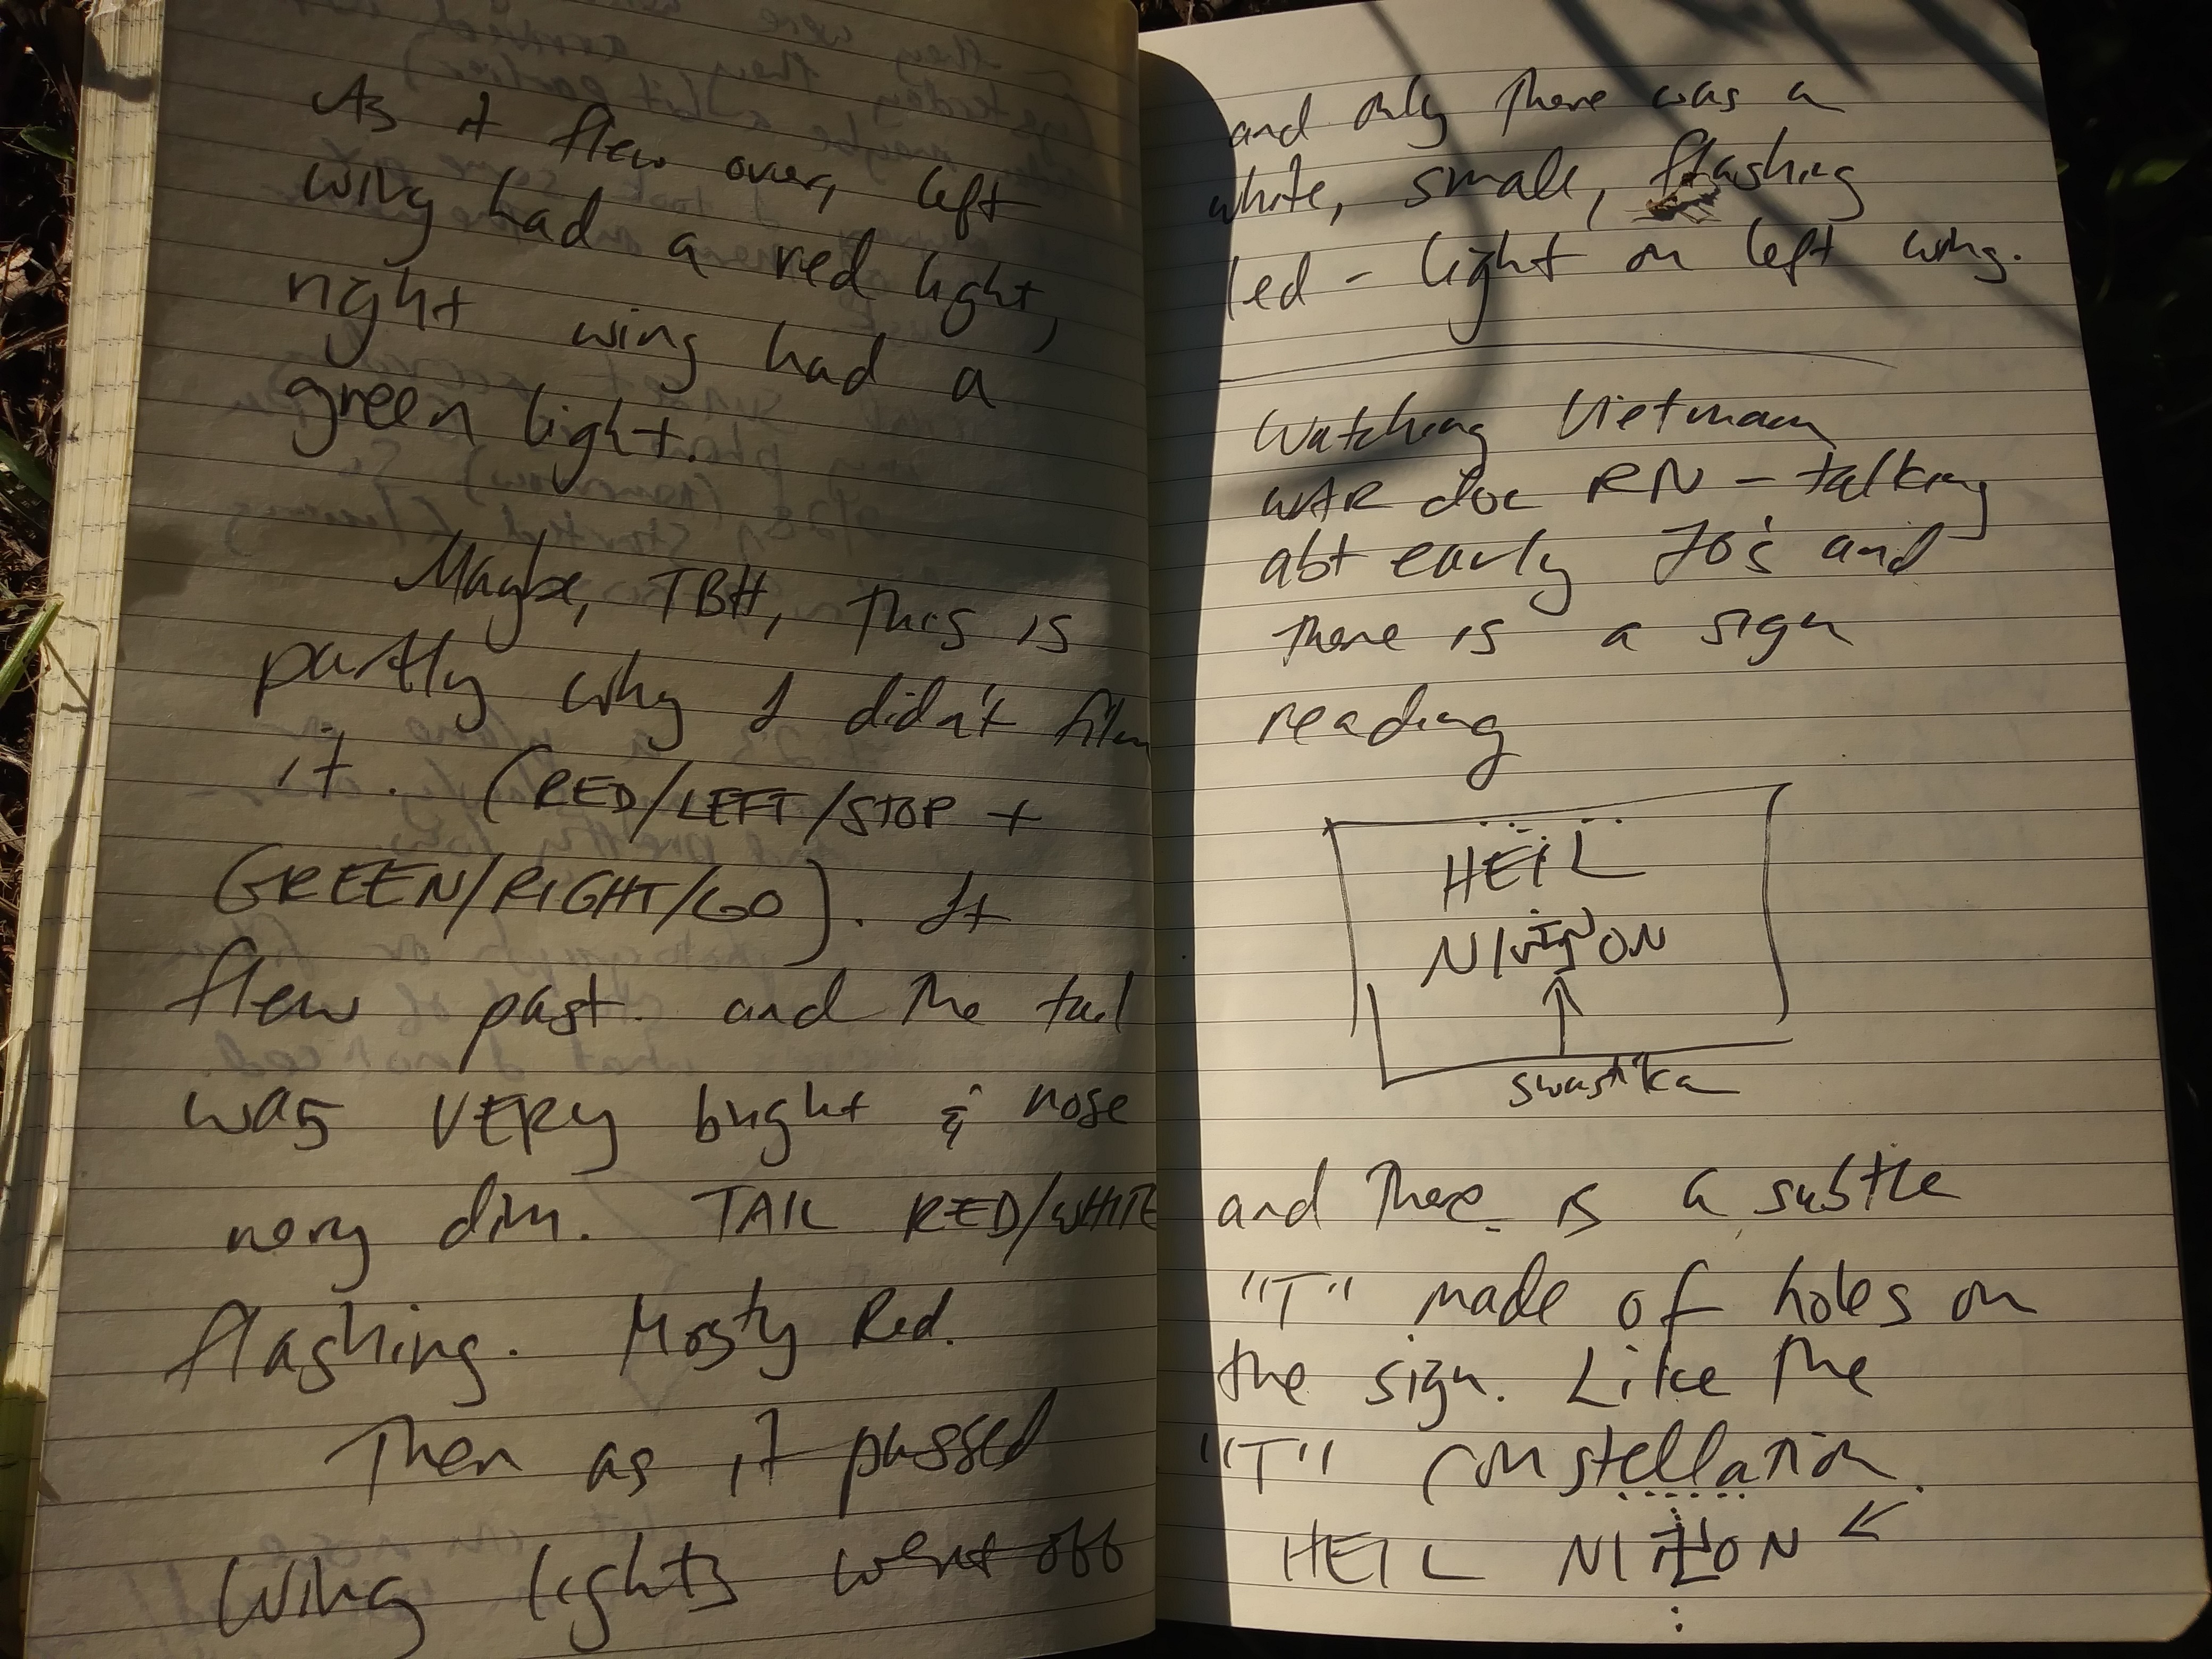 As it flew over, left
wing had a red light,
right wing had a
green light.
Maybe, TBH, this is
partly why I didn't film
it. (RED/LEFT/STOP +
GREEN/RIGHT/GO). It
flew past. and the tail
was VERY bright & nose
very dim. TAIL RED/WHITE
flashing. Mostly Red.
Then as it passed
Wing lights went off
and only there was a
white, small, flashing
led - light on left wing.
Watching Vietnam
WAR doc RN - talking
abt early 70's and
there is a sign
reading
HEIL
NI卐ON
swastika
and there is a subtle
"T" made of holes on
the sign. Like the
"T" constellation.
HEIL NI卐ON